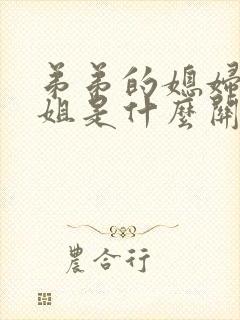 弟弟的媳婦
姐是什麼關
農合行